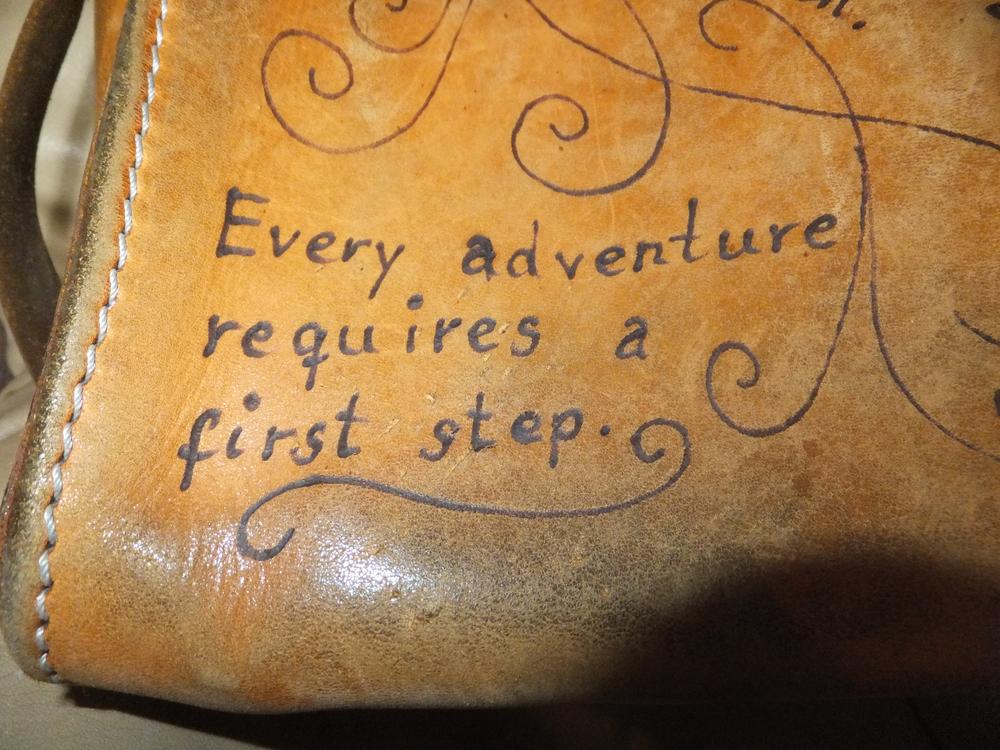 Every adventure
requires a
first step.